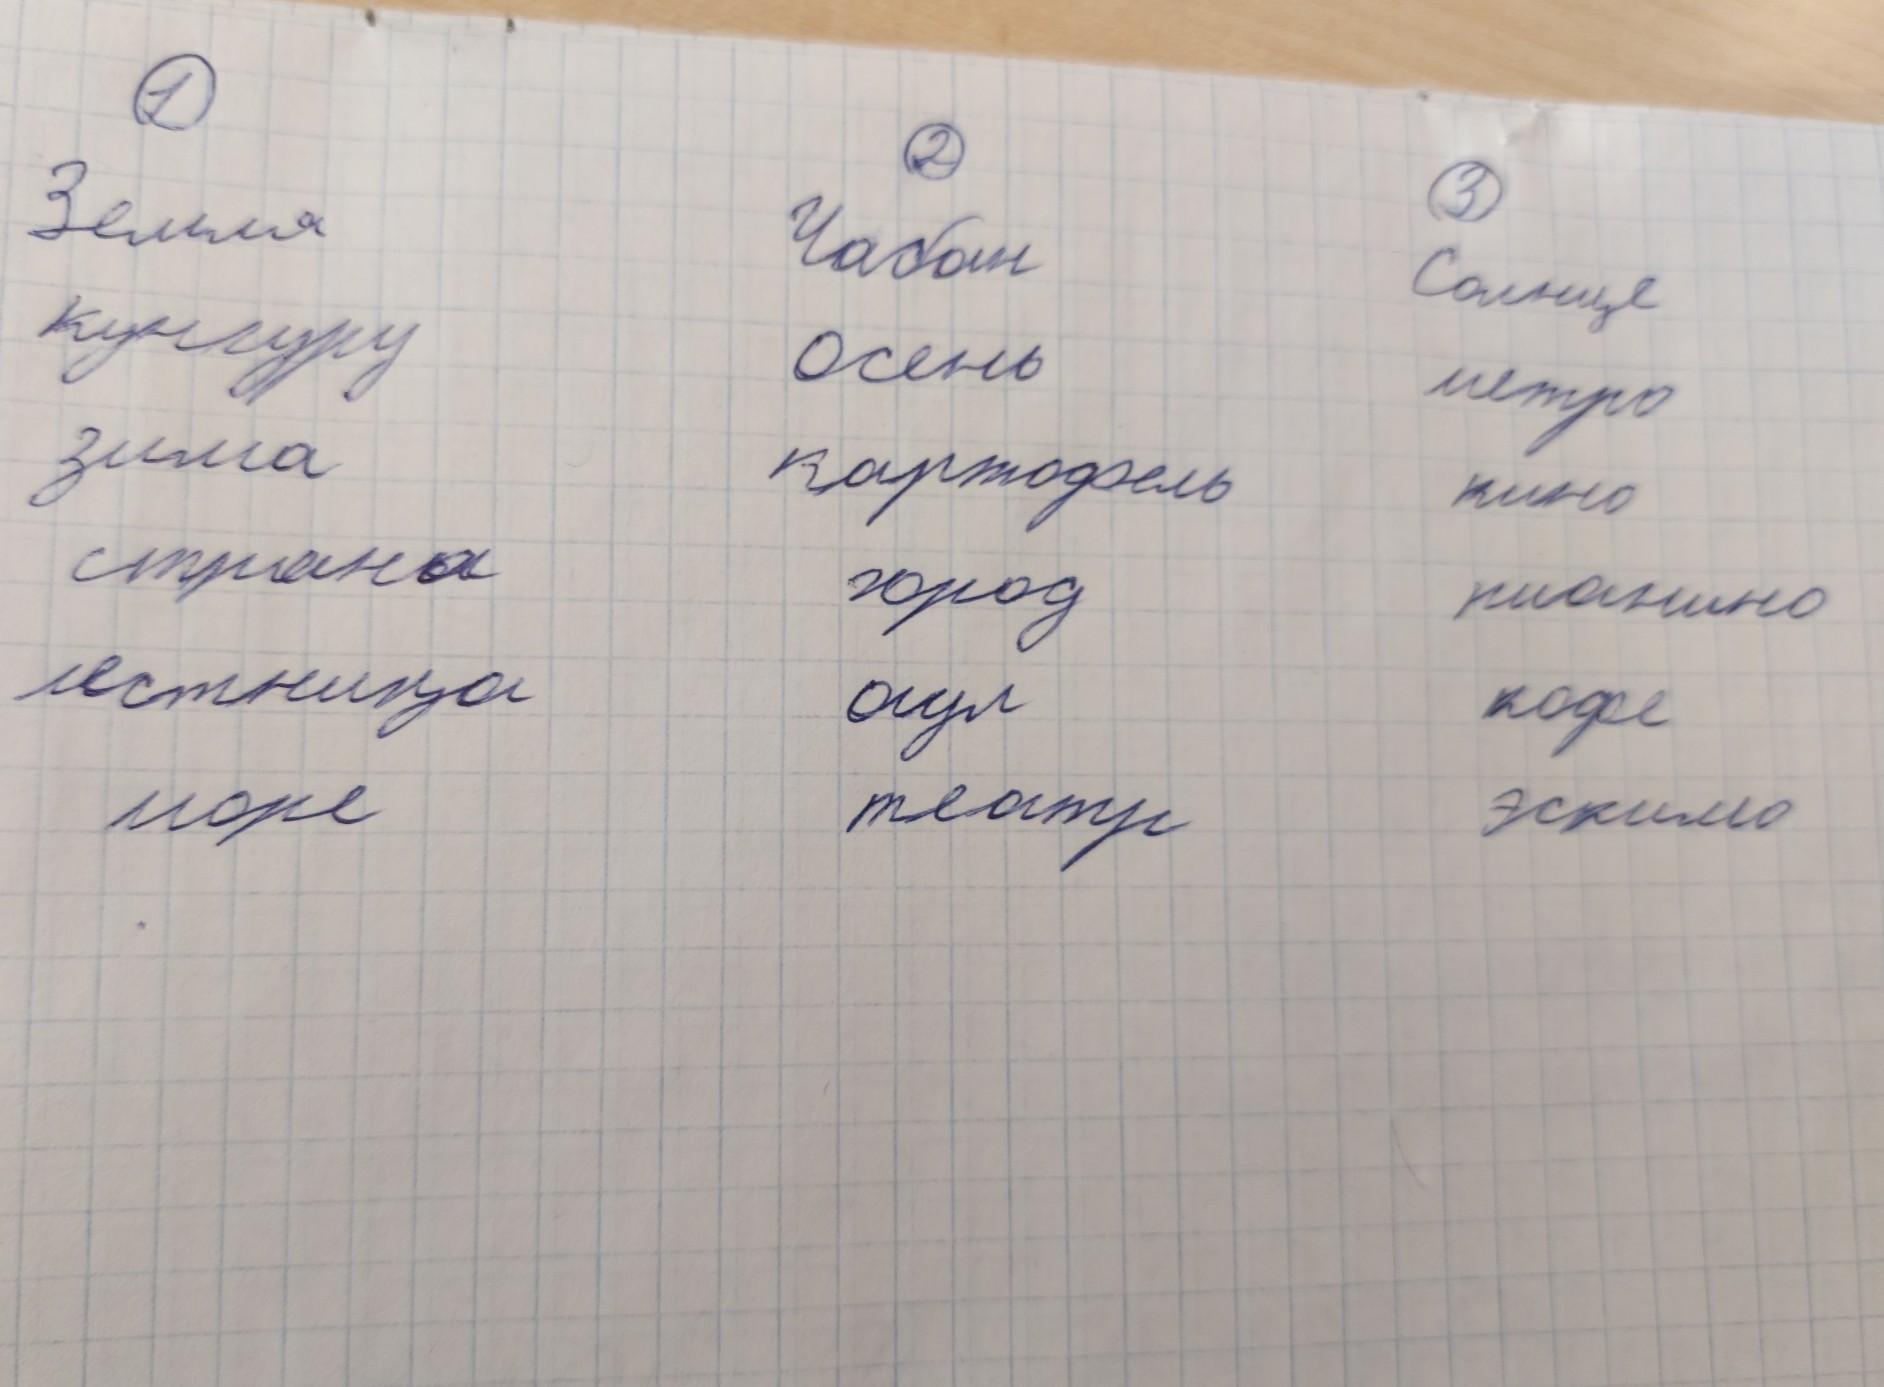 1
Земля
кунгуру
зима
страна
лестница
море
2
Чабан
Осень
картофель
город
аул
театр
3
Солнце
метро
кино
пианино
кофе
эскимо